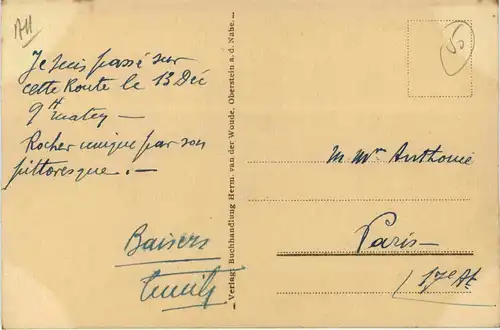 Je suis passé sur
cette Route le 13 Déc
9H matin —
Rocher unique par son
pittoresque. —
Baisers
— Verlag: Buchhandlung Herm. van der Woude, Oberstein a. d. Nahe. —
50
M. Mme Anthonie
Paris —
17e At